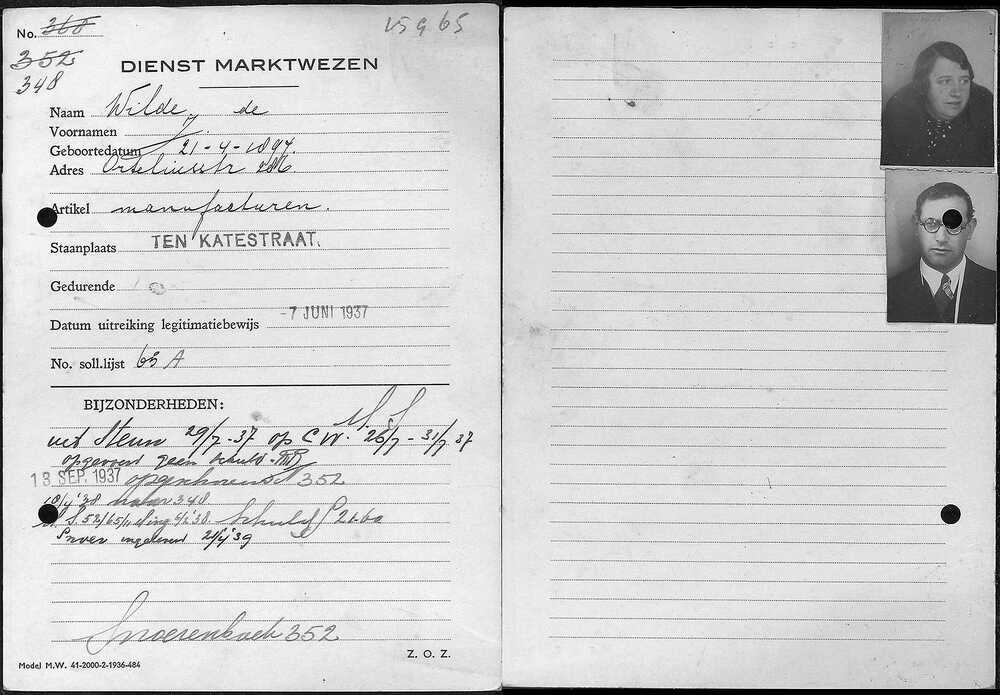 No. 368
352
348
DIENST MARKTWEZEN
Naam Wilde, de
Voornamen J.
Geboortedatum 21-4-1897.
Adres Orteliusstr 286
Artikel manufacturen.
Staanplaats TEN KATESTRAAT.
Gedurende
Datum uitreiking legitimatiebewijs -7 JUNI 1937
No. soll.lijst 65 A
BIJZONDERHEDEN:
uit Steun 29/7-37 op C W. 26/7 - 31/7 37
opgevoerd geen schuld
13 SEP. 1937 352
18/4 '38 naar 348
schuld 21.60
ingeleverd 21/4 '39
352
Z. O. Z.
Model M.W. 41-2000-2-1936-484